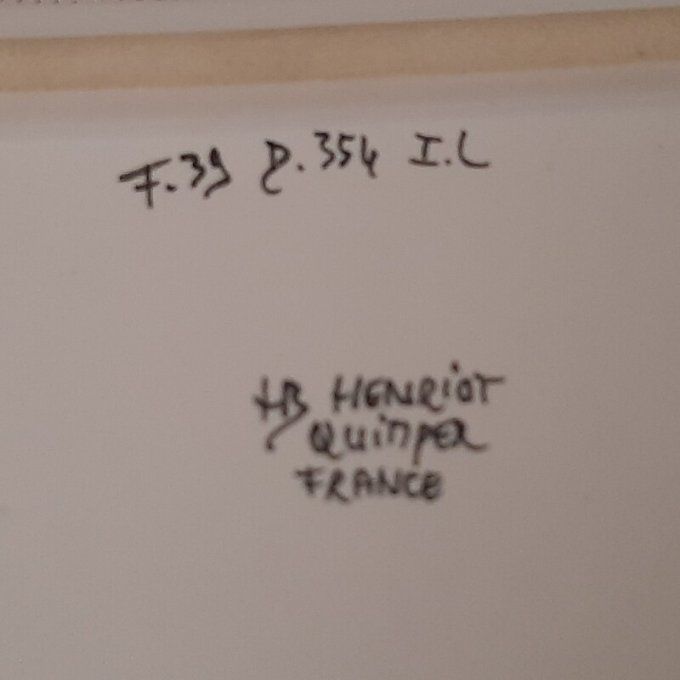 F.39 D.354 I.L
HB HENRiOT
QUimpER
FRANCE